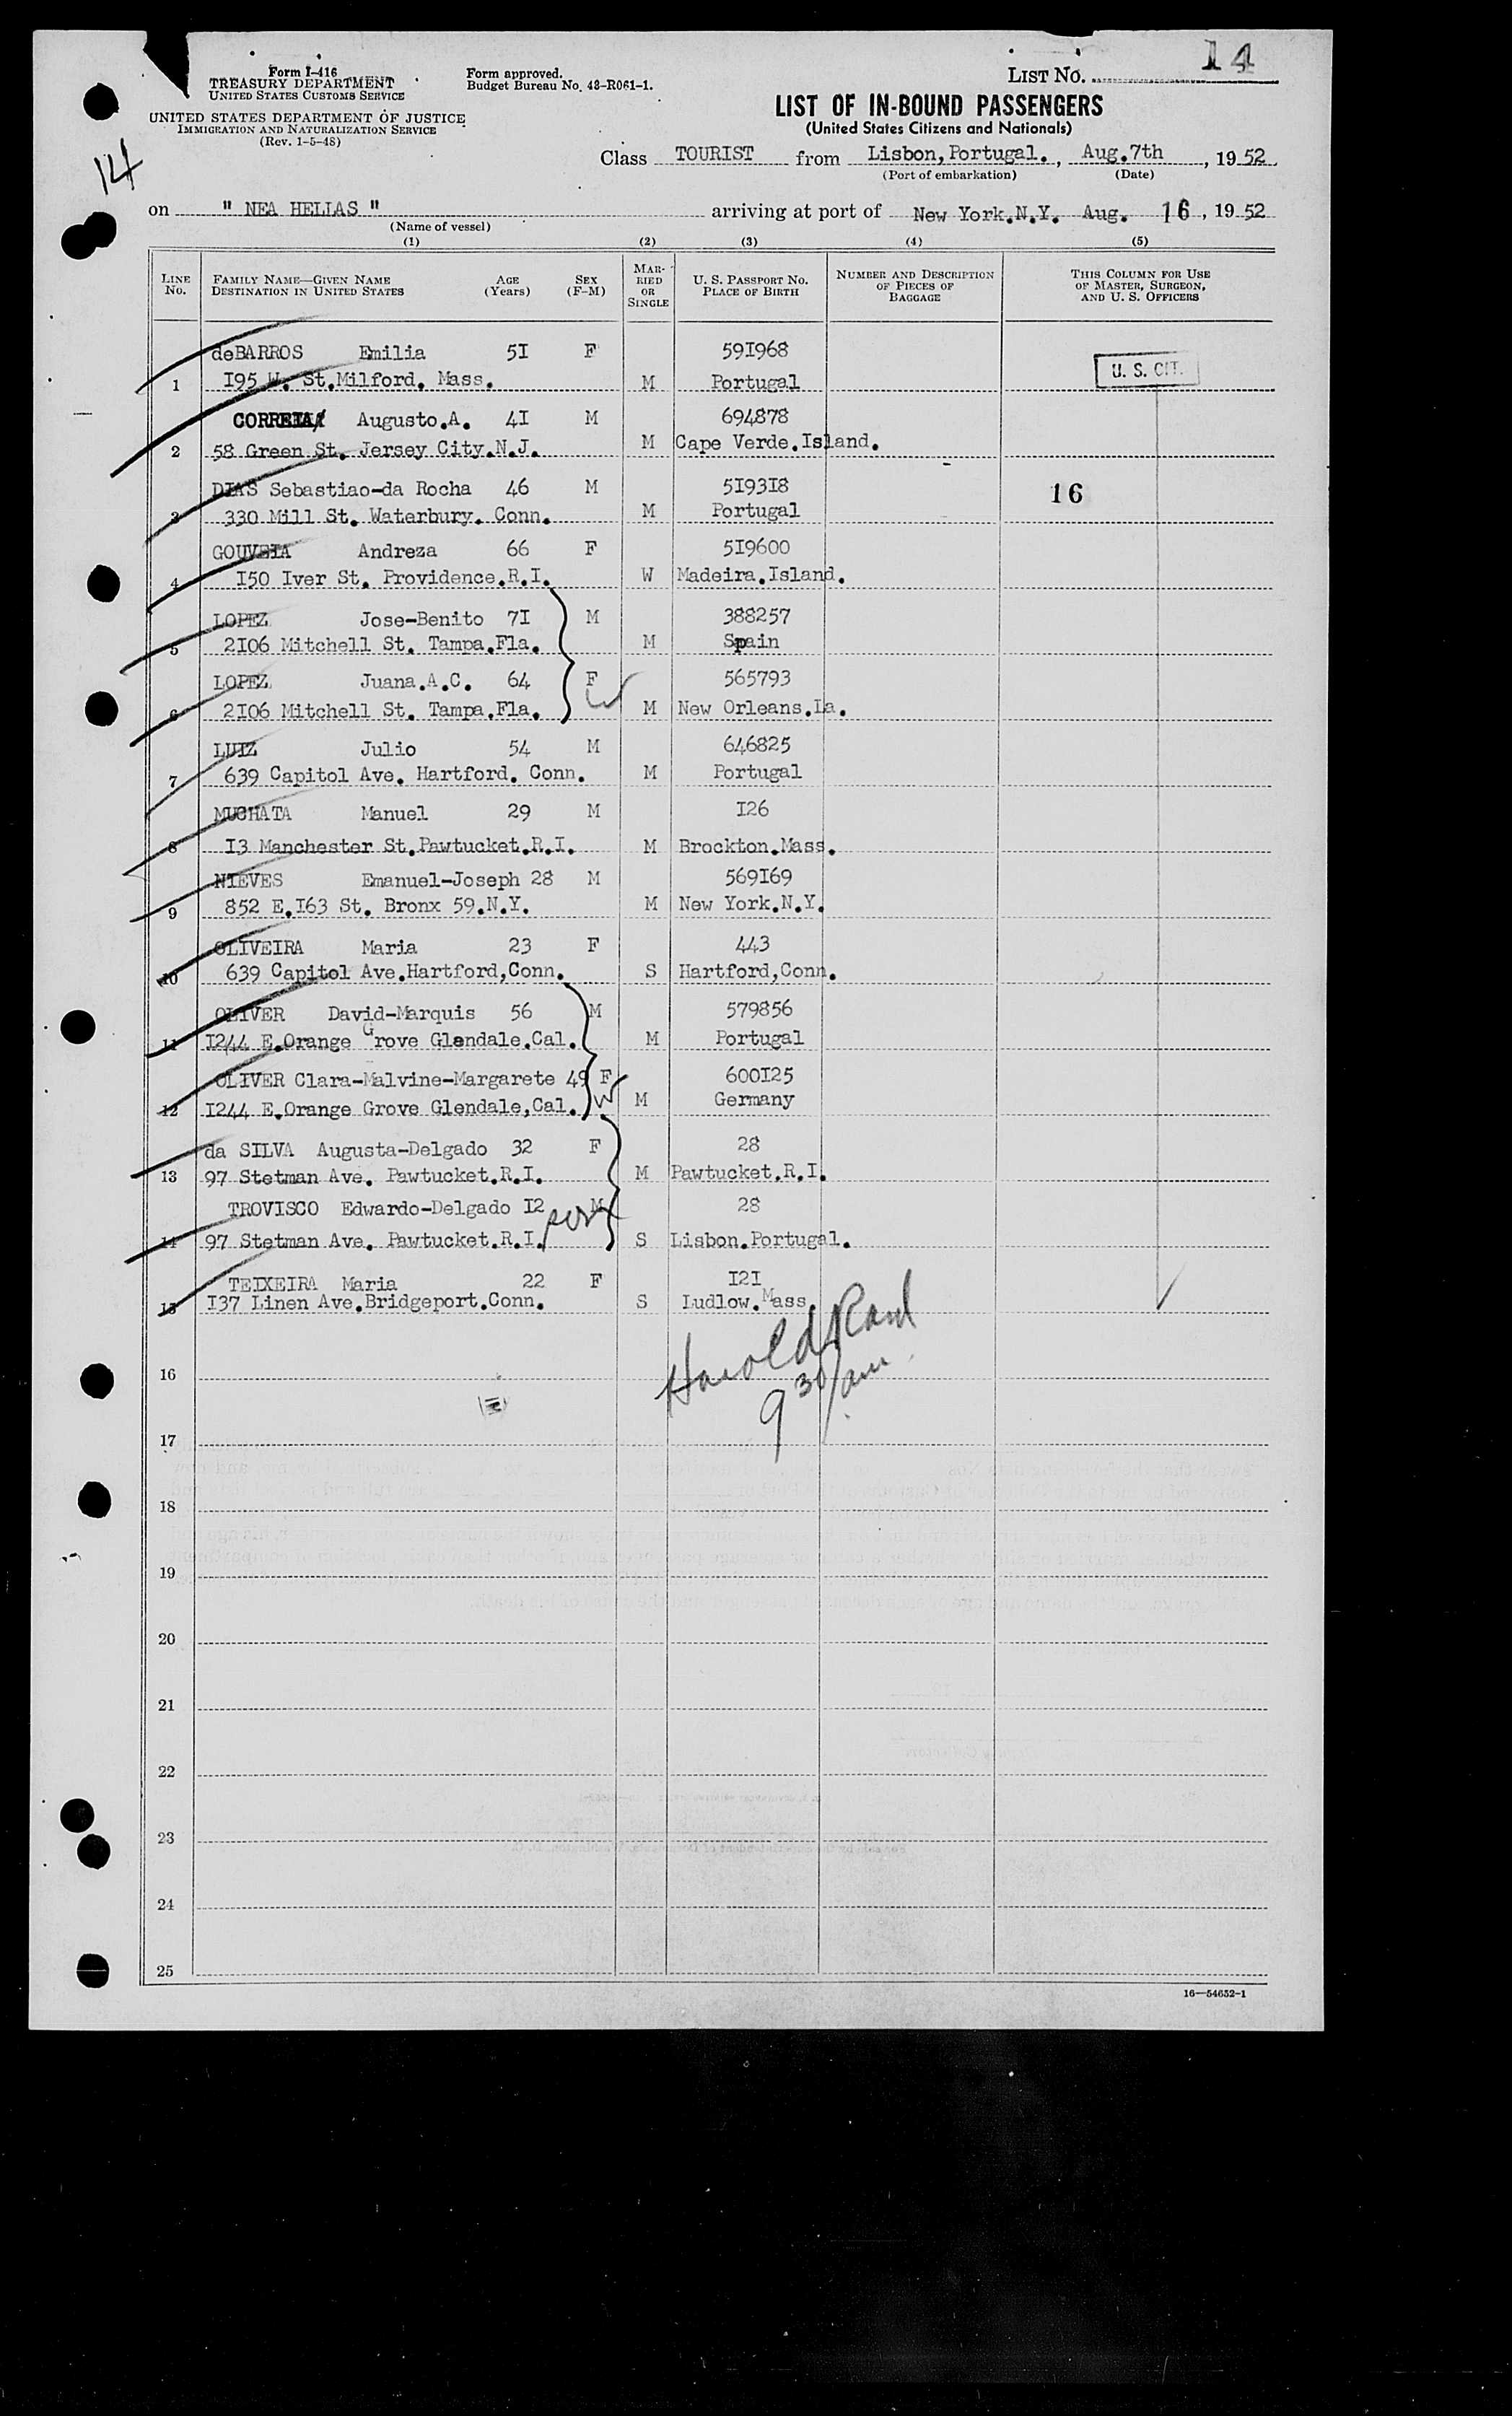 14
Form I-416
TREASURY DEPARTMENT
UNITED STATES CUSTOMS SERVICE
Form approved.
Budget Bureau No. 43-R061-1.
LIST NO. 14
UNITED STATES DEPARTMENT OF JUSTICE
IMMIGRATION AND NATURALIZATION SERVICE
(Rev. 1-5-48)
LIST OF IN-BOUND PASSENGERS
(United States Citizens and Nationals)
Class TOURIST from Lisbon,Portugal. , Aug.7th , 19 52
(Port of embarkation) (Date)
on " NEA HELLAS " arriving at port of New York.N.Y. Aug. 16 , 19 52
(Name of vessel)
(1) (2) (3) (4) (5)
LINE No. FAMILY NAME—GIVEN NAME DESTINATION IN UNITED STATES AGE (Years) SEX (F-M) MARRIED OR SINGLE U. S. PASSPORT NO. PLACE OF BIRTH NUMBER AND DESCRIPTION OF PIECES OF BAGGAGE THIS COLUMN FOR USE OF MASTER, SURGEON, AND U. S. OFFICERS
deBARROS Emilia 5I F 59I968
1 I95 W. St.Milford. Mass. M Portugal U. S. CIT.
CORREIA Augusto.A. 4I M 694878
2 58 Green St. Jersey City.N.J. M Cape Verde.Island.
DIAS Sebastiao-da Rocha 46 M 5I93I8 16
3 330 Mill St. Waterbury. Conn. M Portugal
GOUVEIA Andreza 66 F 5I9600
4 I50 Iver St. Providence.R.I. W Madeira.Island.
LOPEZ Jose-Benito 7I M 388257
5 2I06 Mitchell St. Tampa.Fla. M Spain
LOPEZ Juana.A.C. 64 F 565793
6 2I06 Mitchell St. Tampa.Fla. W M New Orleans.La.
LUIZ Julio 54 M 646825
7 639 Capitol Ave. Hartford. Conn. M Portugal
MUCHATA Manuel 29 M I26
8 I3 Manchester St.Pawtucket.R.I. M Brockton.Mass.
NIEVES Emanuel-Joseph 28 M 569I69
9 852 E.I63 St. Bronx 59.N.Y. M New York.N.Y.
OLIVEIRA Maria 23 F 443
10 639 Capitol Ave.Hartford,Conn. S Hartford,Conn.
OLIVER David-Marquis 56 M 579856
11 I244 E.Orange Grove Glendale.Cal. M Portugal
OLIVER Clara-Malvine-Margarete 49 F 600I25
12 I244 E.Orange Grove Glendale,Cal. W M Germany
da SILVA Augusta-Delgado 32 F 28
13 97 Stetman Ave. Pawtucket.R.I. M Pawtucket.R.I.
TROVISCO Edwardo-Delgado I2 M 28
14 97 Stetman Ave. Pawtucket.R.I. son S Lisbon.Portugal.
TEIXEIRA Maria 22 F I2I
15 I37 Linen Ave.Bridgeport.Conn. S Ludlow.Mass.
Harold
16
9 30/am
17
18
19
20
21
22
23
24
25
16—54652-1